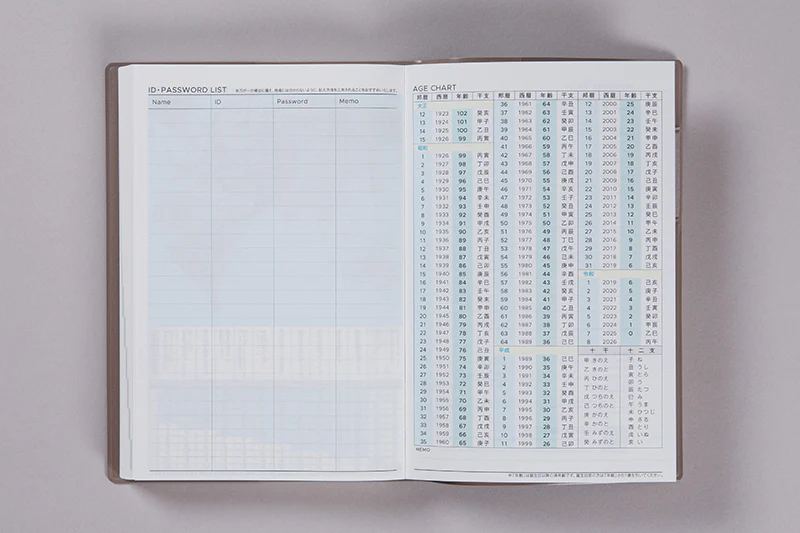 ID・PASSWORD LIST
記入方法を工夫されることをおすすめいたします。
Name ID Password Memo
AGE CHART
邦暦 西暦 年齢 干支 邦暦 西暦 年齢 干支 邦暦 西暦 年齢 干支
大正
12 1923 102 癸亥
13 1924 101 甲子
14 1925 100 乙丑
15 1926 99 丙寅
昭和
1 1926 99 丙寅
2 1927 98 丁卯
3 1928 97 戊辰
4 1929 96 己巳
5 1930 95 庚午
6 1931 94 辛未
7 1932 93 壬申
8 1933 92 癸酉
9 1934 91 甲戌
10 1935 90 乙亥
11 1936 89 丙子
12 1937 88 丁丑
13 1938 87 戊寅
14 1939 86 己卯
15 1940 85 庚辰
16 1941 84 辛巳
17 1942 83 壬午
18 1943 82 癸未
19 1944 81 甲申
20 1945 80 乙酉
21 1946 79 丙戌
22 1947 78 丁亥
23 1948 77 戊子
24 1949 76 己丑
25 1950 75 庚寅
26 1951 74 辛卯
27 1952 73 壬辰
28 1953 72 癸巳
29 1954 71 甲午
30 1955 70 乙未
31 1956 69 丙申
32 1957 68 丁酉
33 1958 67 戊戌
34 1959 66 己亥
35 1960 65 庚子
36 1961 64 辛丑
37 1962 63 壬寅
38 1963 62 癸卯
39 1964 61 甲辰
40 1965 60 乙巳
41 1966 59 丙午
42 1967 58 丁未
43 1968 57 戊申
44 1969 56 己酉
45 1970 55 庚戌
46 1971 54 辛亥
47 1972 53 壬子
48 1973 52 癸丑
49 1974 51 甲寅
50 1975 50 乙卯
51 1976 49 丙辰
52 1977 48 丁巳
53 1978 47 戊午
54 1979 46 己未
55 1980 45 庚申
56 1981 44 辛酉
57 1982 43 壬戌
58 1983 42 癸亥
59 1984 41 甲子
60 1985 40 乙丑
61 1986 39 丙寅
62 1987 38 丁卯
63 1988 37 戊辰
64 1989 36 己巳
平成
1 1989 36 己巳
2 1990 35 庚午
3 1991 34 辛未
4 1992 33 壬申
5 1993 32 癸酉
6 1994 31 甲戌
7 1995 30 乙亥
8 1996 29 丙子
9 1997 28 丁丑
10 1998 27 戊寅
11 1999 26 己卯
12 2000 25 庚辰
13 2001 24 辛巳
14 2002 23 壬午
15 2003 22 癸未
16 2004 21 甲申
17 2005 20 乙酉
18 2006 19 丙戌
19 2007 18 丁亥
20 2008 17 戊子
21 2009 16 己丑
22 2010 15 庚寅
23 2011 14 辛卯
24 2012 13 壬辰
25 2013 12 癸巳
26 2014 11 甲午
27 2015 10 乙未
28 2016 9 丙申
29 2017 8 丁酉
30 2018 7 戊戌
31 2019 6 己亥
令和
1 2019 6 己亥
2 2020 5 庚子
3 2021 4 辛丑
4 2022 3 壬寅
5 2023 2 癸卯
6 2024 1 甲辰
7 2025 0 乙巳
8 2026 丙午
十干
甲 きのえ
乙 きのと
丙 ひのえ
丁 ひのと
戊 つちのえ
己 つちのと
庚 かのえ
辛 かのと
壬 みずのえ
癸 みずのと
十二支
子 ね
丑 うし
寅 とら
卯 う
辰 たつ
巳 み
午 うま
未 ひつじ
申 さる
酉 とり
戌 いぬ
亥 い
MEMO
※「年齢」は誕生日以降の満年齢です。誕生日前の方は「年齢」から1歳を引いてください。